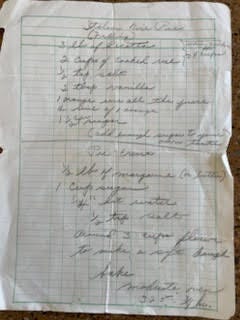 Italian Rice Pie
Filling
3 lbs of Ricotta
2 Cups of Cooked rice
1/2 tsp salt
3 tbsp vanilla
1 orange use all the juice
rind of orange
1 1/2 C sugar
(add enough sugar to your
taste)
Pie-Crust
1/2 lb of margarine (or butter)
1 Cup sugar
hot water
1/2 tsp salt
around 3 cups flour
to make a soft dough
bake
moderate oven
325°